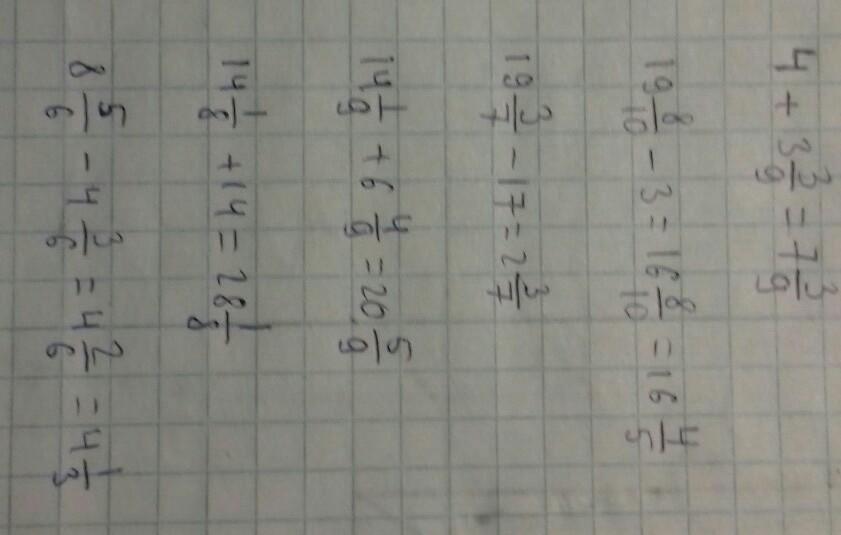 4 + 3 3/9 = 7 3/9
19 8/10 - 3 = 16 8/10 = 16 4/5
19 3/7 - 17 = 2 3/7
14 1/9 + 6 4/9 = 20 5/9
14 1/8 + 14 = 28 1/8
8 5/6 - 4 3/6 = 4 2/6 = 4 1/3